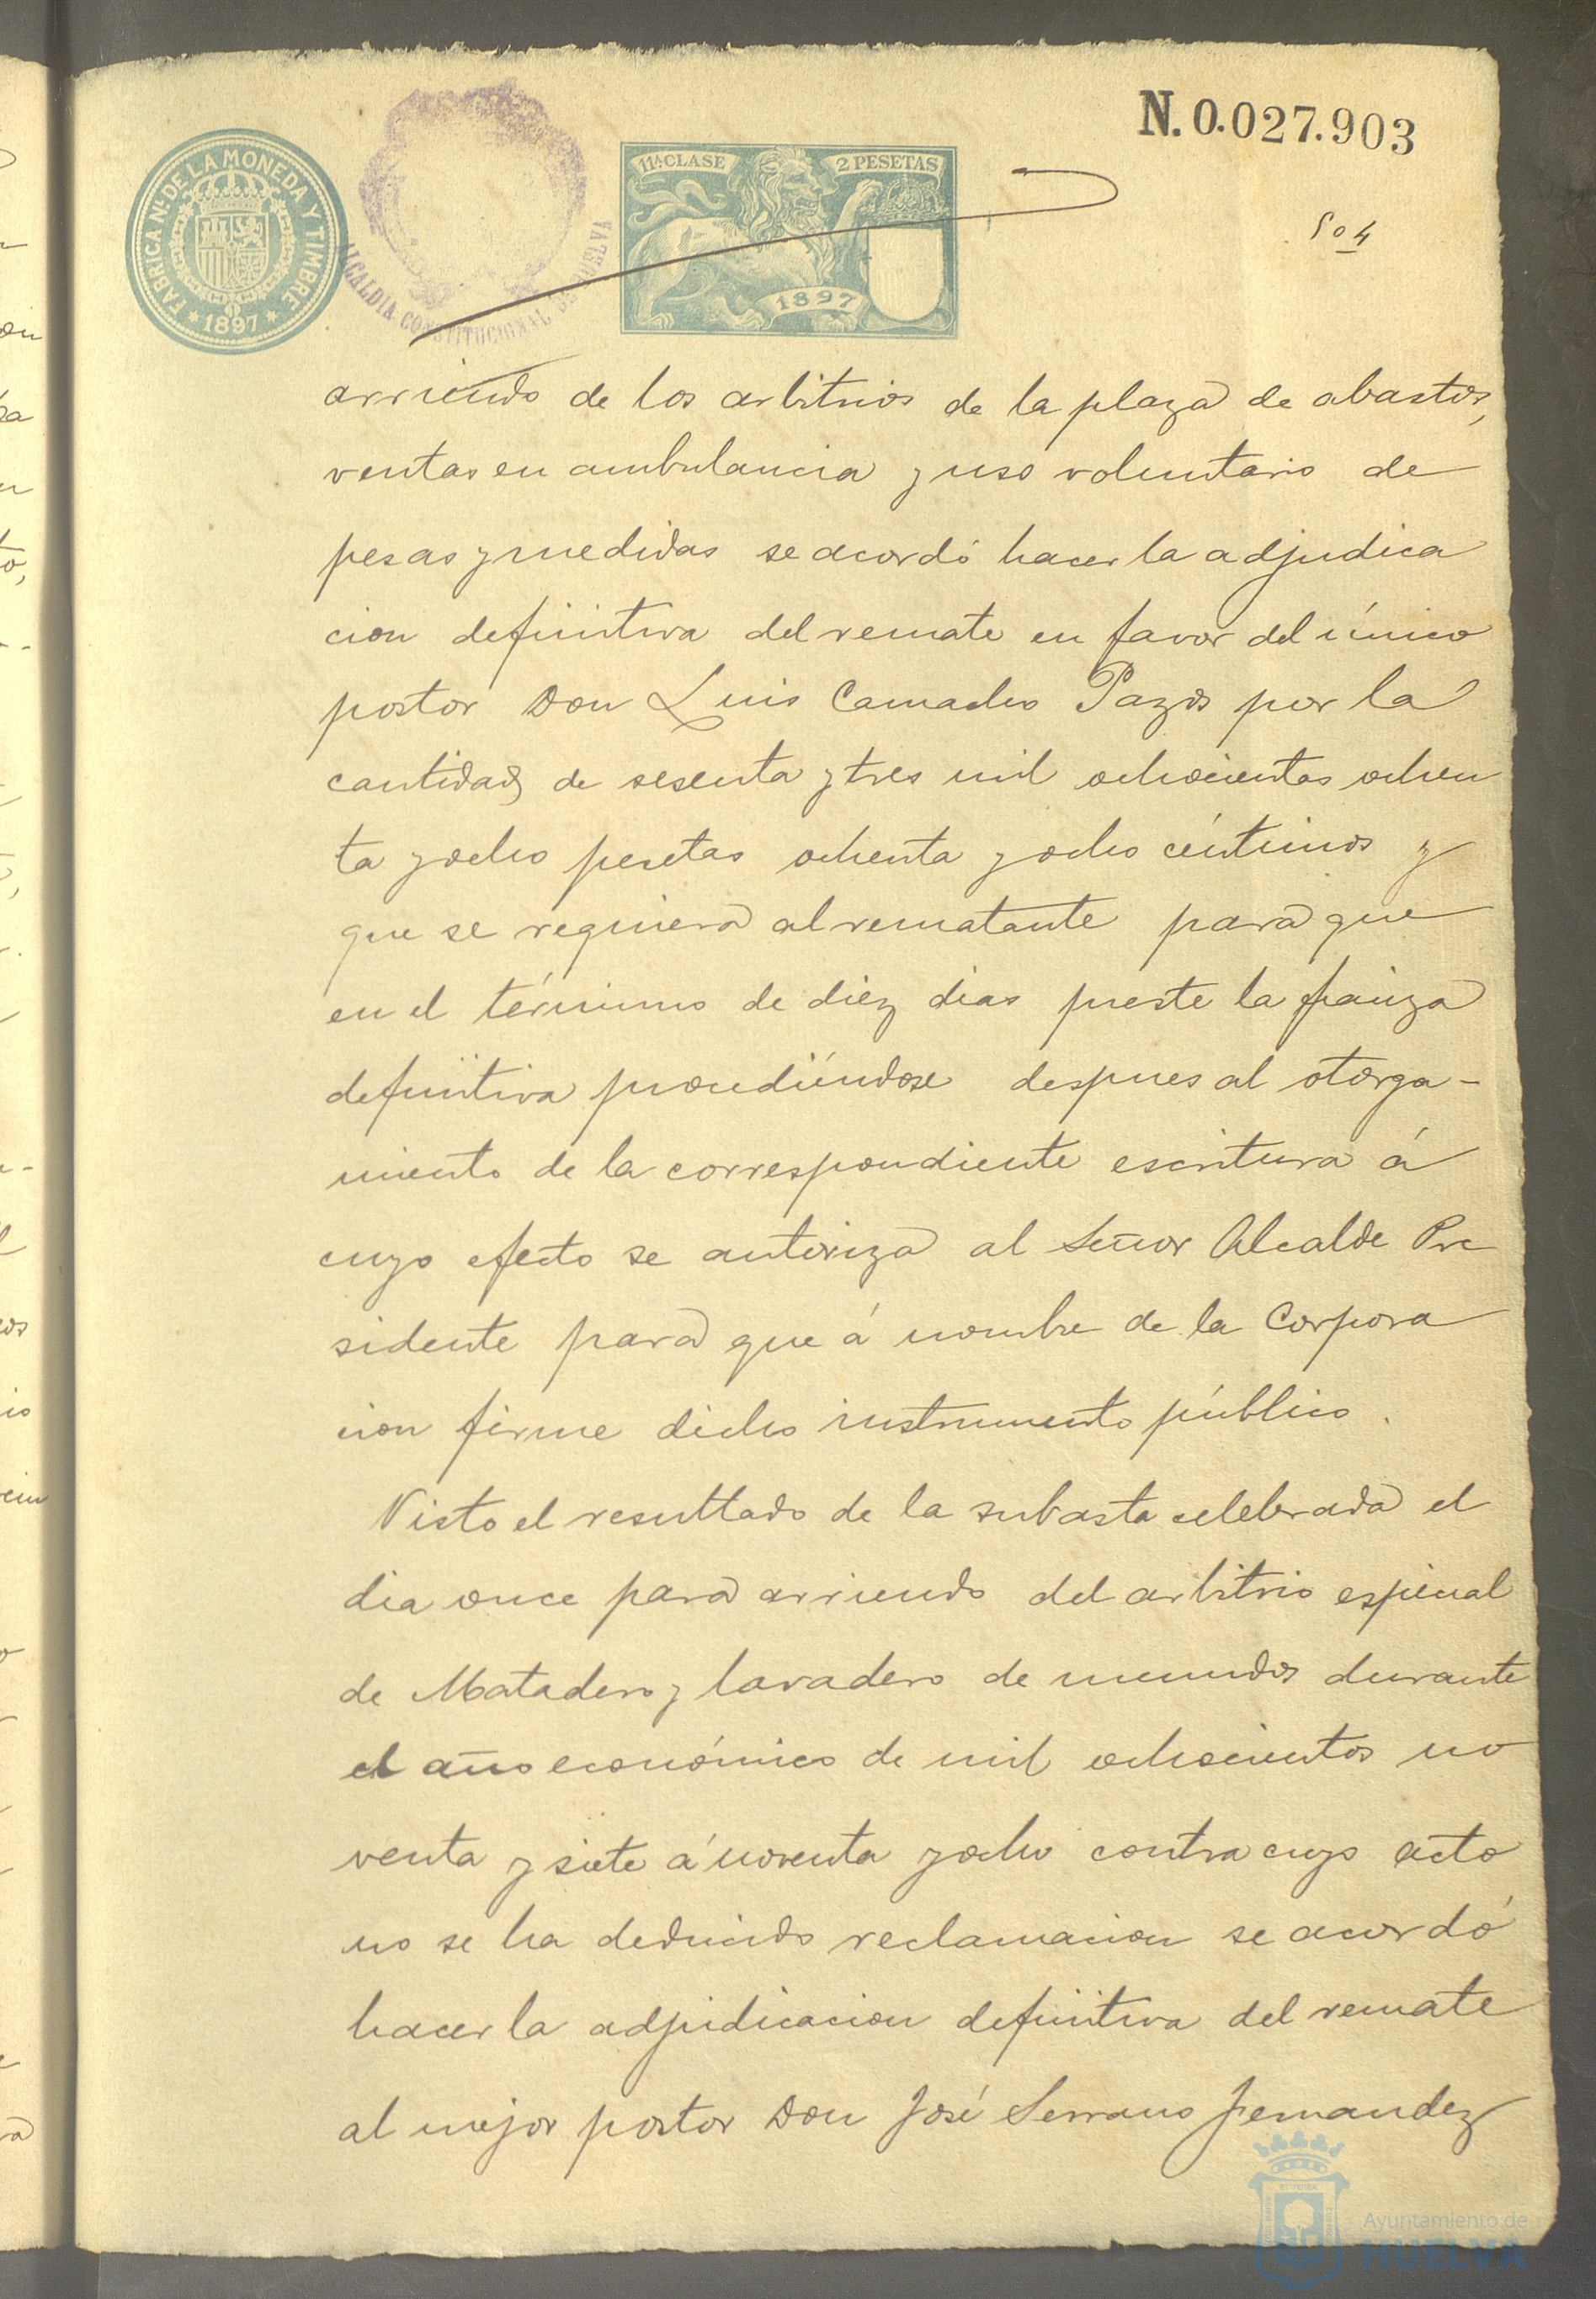 N. 0.027.903
FABRICA NL. DE LA MONEDA Y TIMBRE
* 1897 *
ALCALDIA CONSTITUCIONAL DE HUELVA
11ª CLASE
2 PESETAS
1897
504
arriendo de los arbitrios de la plaza de abastos,
ventas en ambulancia y uso voluntario de
pesas y medidas se acordó hacer la adjudica
cion definitiva del remate en favor del único
postor Don Luis Camacho Pazos por la
cantidad de sesenta y tres mil ochocientas ochen
ta y ocho pesetas ochenta y ocho céntimos y
que se requiera al rematante para que
en el término de diez dias preste la fianza
definitiva procediéndose despues al otorga-
miento de la correspondiente escritura á
cuyo efecto se autoriza al Señor Alcalde Pre
sidente para que á nombre de la Corpora
cion firme dicho instrumento público.
Visto el resultado de la subasta celebrada el
dia once para arriendo del arbitrio especial
de Matadero y lavadero de menudos durante
el año económico de mil ochocientos no
venta y siete á noventa y ocho contra cuyo acto
no se ha deducido reclamacion se acordó
hacer la adjudicacion definitiva del remate
al mejor postor Don José Serrano Fernandez
Ayuntamiento de
HUELVA